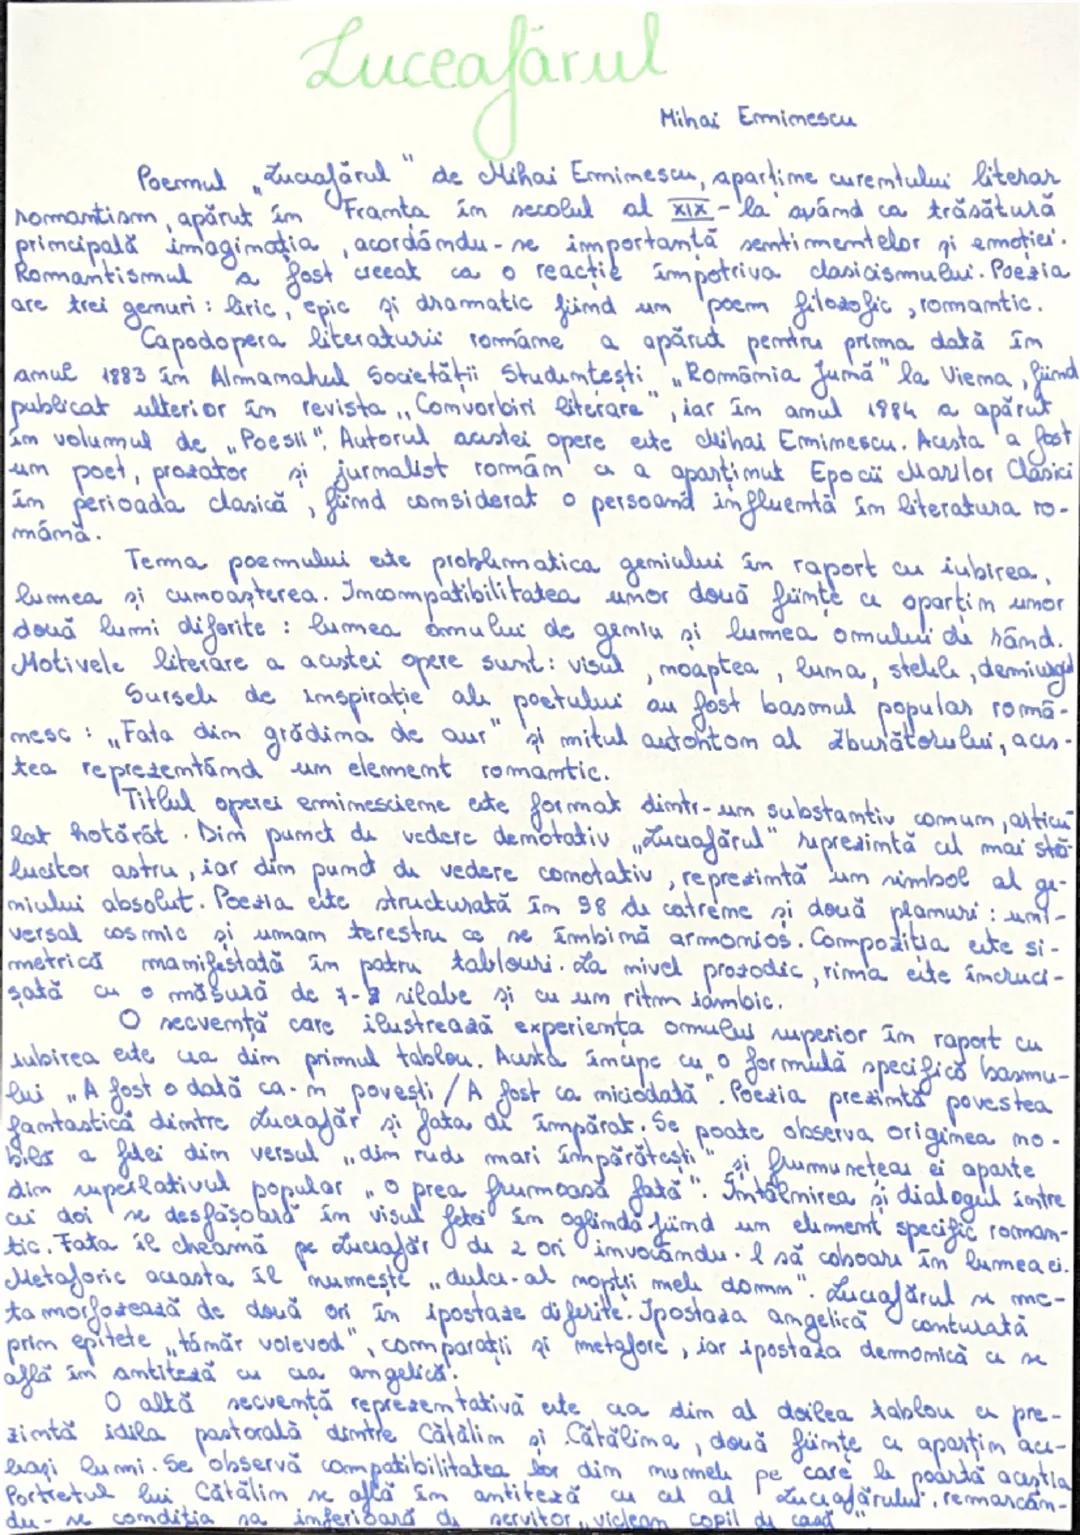 Luceafărul
Mihai Eminescu
Poemul „Luceafărul" de Mihai Eminescu, aparține curentului literar
romantism, apărut în Franța în secolul al XIX-la având ca trăsătură
principală imaginația, acordându-se importanță sentimentelor și emoției.
Romantismul a fost creeat ca o reacție împotriva clasicismului. Poezia
are trei genuri: liric, epic și dramatic fiind un poem filozofic, romantic.
Capodopera literaturii române a apărut pentru prima dată în
anul 1883 în Almanahul Societății Studențești „România Jună" la Viena, fiind
publicat ulterior în revista „Convorbiri literare", iar în anul 1984 a apărut
în volumul de „Poesii". Autorul acestei opere este Mihai Eminescu. Acesta a fost
un poet, prozator și jurnalist român ce a aparținut Epocii Marilor Clasici
în perioada clasică, fiind considerat o persoană influentă în literatura ro-
mână.
Tema poemului este problematica geniului în raport cu iubirea,
lumea și cunoașterea. Incompatibilitatea unor două ființe ce aparțin unor
două lumi diferite: lumea omului de geniu și lumea omului de rând.
Motivele literare a acestei opere sunt: visul, noaptea, luna, stelele, demiurgul
Sursele de inspirație ale poetului au fost basmul popular romă-
nesc: „Fata din grădina de aur" și mitul autohton al zburătorului, aces-
tea reprezentând un element romantic.
Titlul operei eminesciene este format dintr-un substantiv comun, articu-
lat hotărât. Din punct de vedere denotativ „Luceafărul" reprezintă cel mai stră-
lucitor astru, iar din punct de vedere conotativ, reprezintă un simbol al ge-
niului absolut. Poezia este structurată în 98 de catrene și două planuri: uni-
versal cosmic și uman terestru ce se îmbină armonios. Compoziția este si-
metrică manifestată în patru tablouri. La nivel prozodic, rima este încruci-
șată cu o măsură de 7-8 silabe și cu un ritm iambic.
O secvență care ilustrează experiența omului superior în raport cu
iubirea este cea din primul tablou. Acesta începe cu o formulă specifică basmu-
lui „A fost o dată ca-n povești / A fost ca niciodată". Poezia prezintă povestea
fantastică dintre Luceafăr și fata de împărat. Se poate observa originea no-
bilă a fetei din versul „din rude mari împărătești" și frumusețea ei aparte
din superlativul popular „o prea frumoasă fată". Întâlnirea și dialogul între
cei doi se desfășoară în visul fetei în oglindă fiind un element specific roman-
tic. Fata îl cheamă pe Luceafăr de 2 ori invocându-l să coboare în lumea ei.
Metaforic aceasta îl numește „dulce-al nopții mele domn". Luceafărul se me-
tamorfozează de două ori în ipostaze diferite. Ipostaza angelică conturată
prin epitete „tânăr voievod", comparații și metafore, iar ipostaza demonică ce se
află în antiteză cu cea angelică.
O altă secvență reprezentativă este cea din al doilea tablou ce pre-
zintă idila pastorală dintre Cătălin și Cătălina, două ființe ce aparțin ace-
leași lumi. Se observă compatibilitatea lor din numele pe care le poartă aceștia
Portretul lui Cătălin se află în antiteză cu cel al Luceafărului, remarcân-
du-se condiția sa inferioară de servitor „viclean copil de casă"